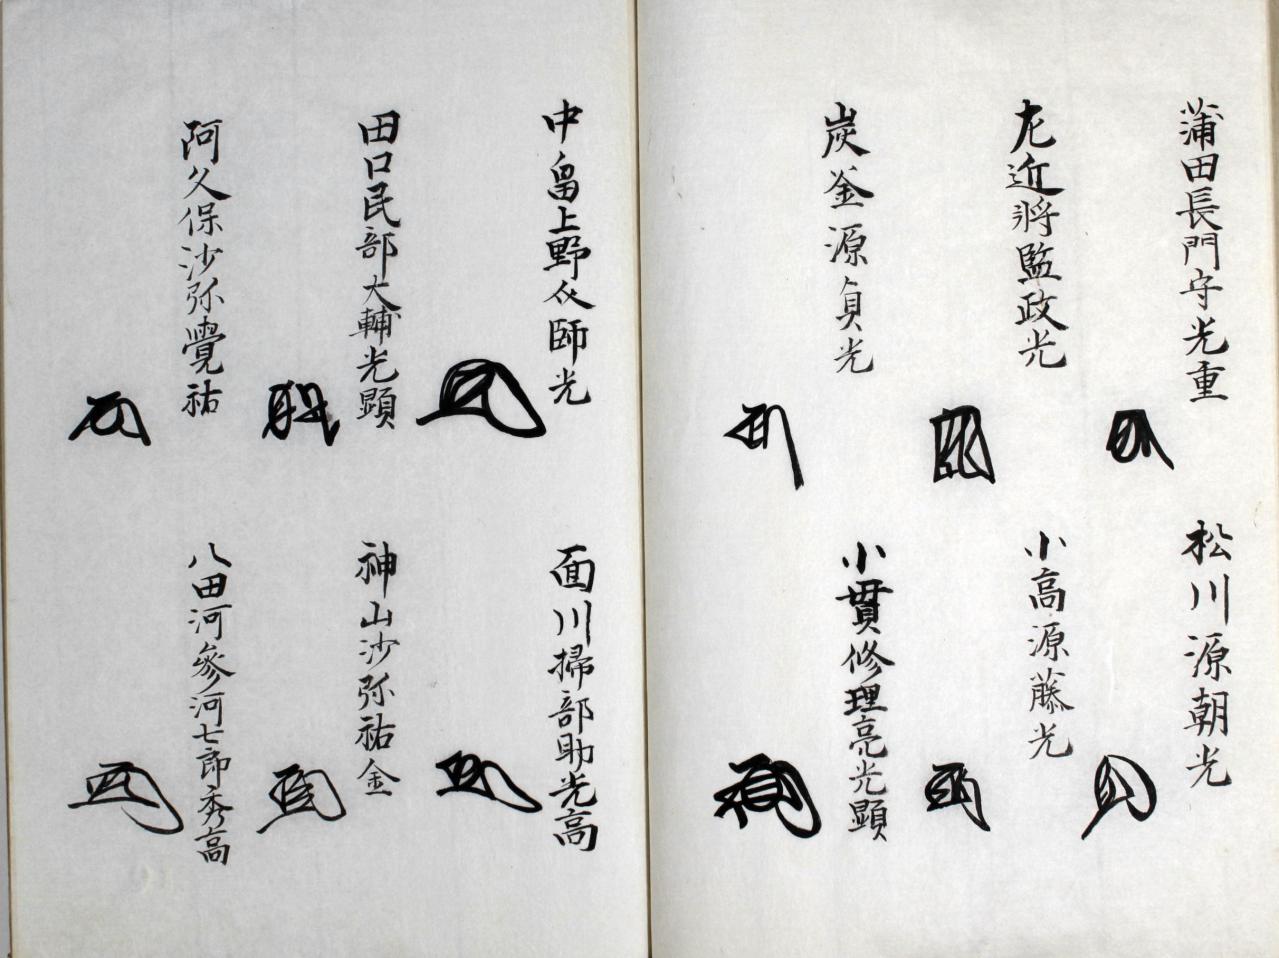 蒲田長門守光重
松川源朝光
左近將監政光
小高源藤光
炭釜源貞光
小貫修理亮光顕
中畠上野介師光
面川掃部助光高
田口民部大輔光顕
神山沙弥祐金
阿久保沙弥覺祐
八田河參河七郎秀高